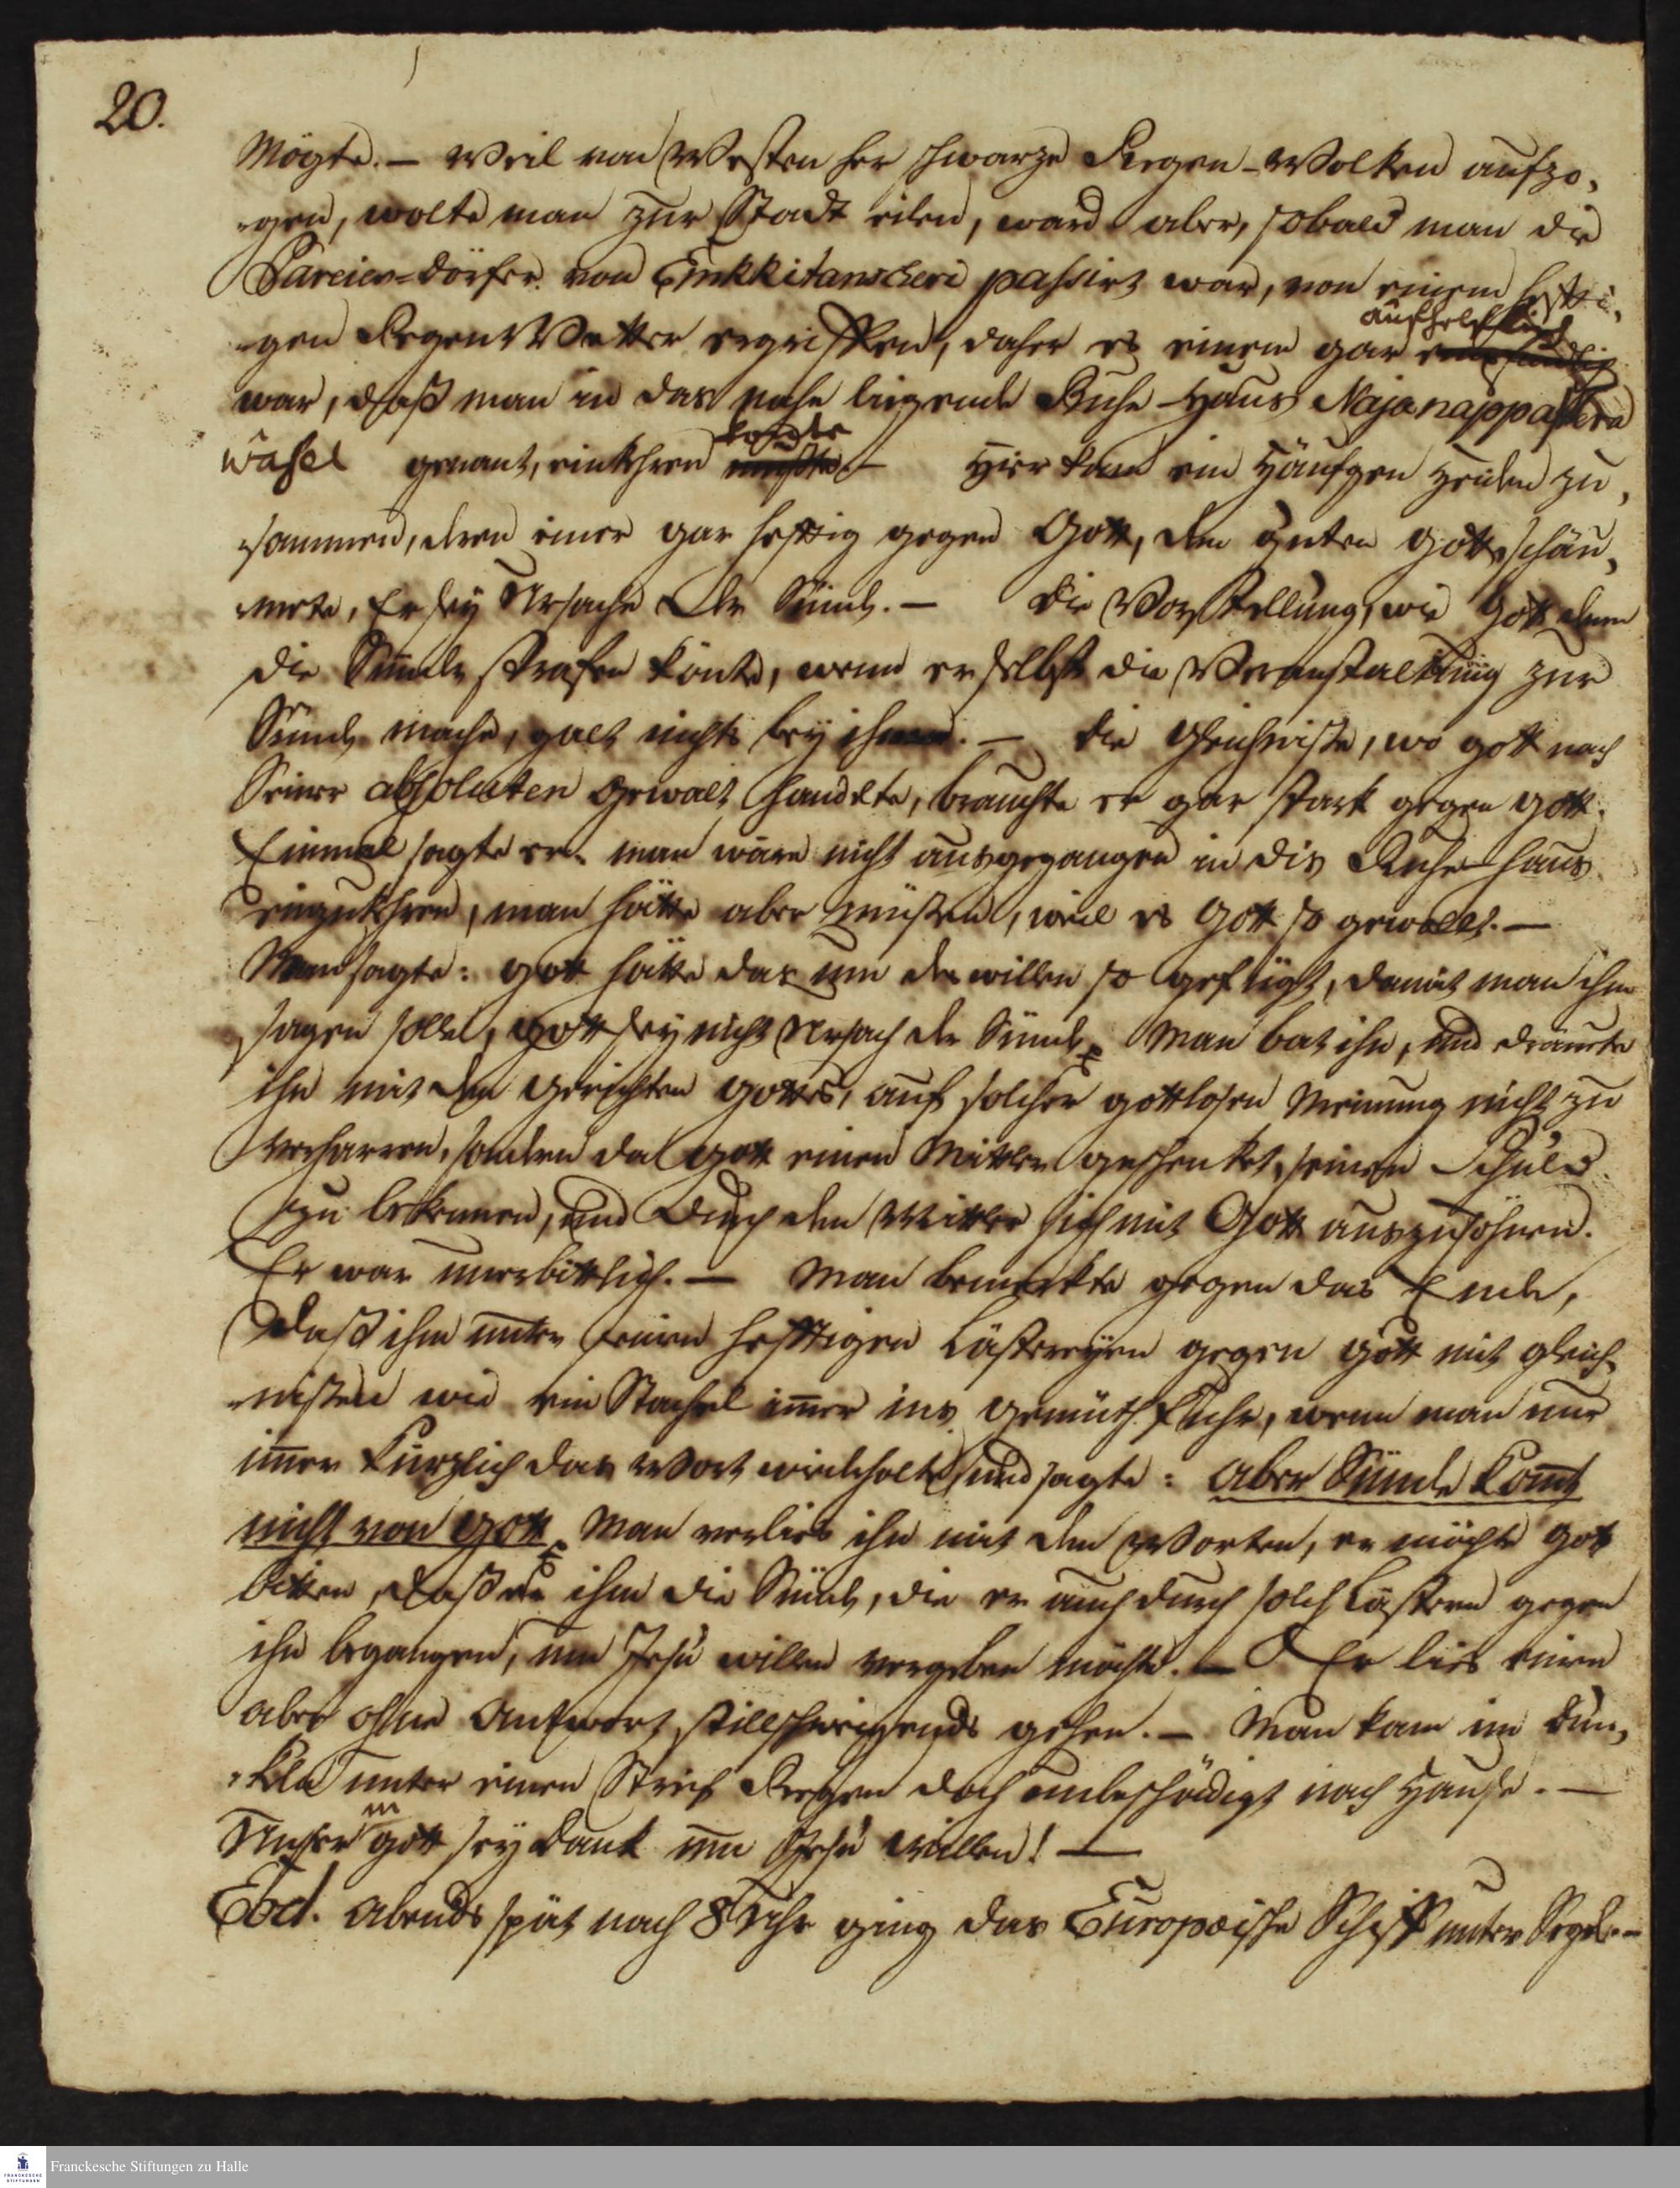 20.
Mögte. – Weil von Westen her schwarze Regen-Wolken aufzo-
-gen, wolte man zur Stadt eilen, ward aber, sobald man die
Pareier-Dörfer von Enkkitanscheri passirt war, von einem hefti-
-gen Regen Wetter ergriffen, daher es einem gar aufhelflich
war, daß man in das nahe liegende Ruhe-Haus Najanappasera
wasel genant, einkehren konte – Hier kam ein Häufgen Heiden zu-
-sammen, deren einer gar heftig gegen Gott, den guten Gott, schäu-
-mete, Er sey Ursache der Sünde. – Die Vorstellung, wie Gott denn
die Sünde strafen könte, wenn er selbst die Veranstaltung zur
Sünde mache, galt nichts bey ihm. – Die Gleichniße, wo Gott nach
Seiner absoluten Gewalt handelte, brauchte er gar stark gegen Gott.
Einmal sagte er: man wäre nicht ausgegangen in dis Ruhe-Haus
einzukehren, man hätte aber müßen, weil es Gott so gewollt. –
Man sagte: Gott hätte das um des willen so gefügt, damit man ihm
sagen solle, Gott sey nicht Ursach der Sünde. Man bat ihn, und dräuete
ihm mit den Gerichten Gottes, auf solcher gottlosen Meinung nicht zu
verharren, sondern da Gott einen Mittler geschenket, seine Schuld
zu bekennen, und durch den Mittler sich mit Gott auszusöhnen.
Er war unerbittlich. – Man bemerkte gegen das Ende,
daß ihm unter seinen hefftigen Lästereyen gegen Gott mit Gleich-
-nißen wie ein Stachel im̄er ins Gemüth fuhr, wenn man nur
im̄er kürzlich das Wort wiederholte, und sagte: aber Sünde kom̄t
nicht von Gott. Man verlies ihn mit den Worten, er möchte Gott
bitten, daß er ihm die Sünde, die er auch durch solch Lästern gegen
ihn begangen, um Jesu willen vergeben möchte. – Er lies einen
aber ohne Antwort, stillschweigends gehen. – Man kam im Dun-
-keln unter einen Strich Regen doch unbeschädigt nach Hause. –
Unserm Gott sey Dank um Jesu willen! –
Eod. Abends spät nach 8 Uhr ging das Europæische Schiff unter Segel. –
Franckesche Stiftungen zu Halle